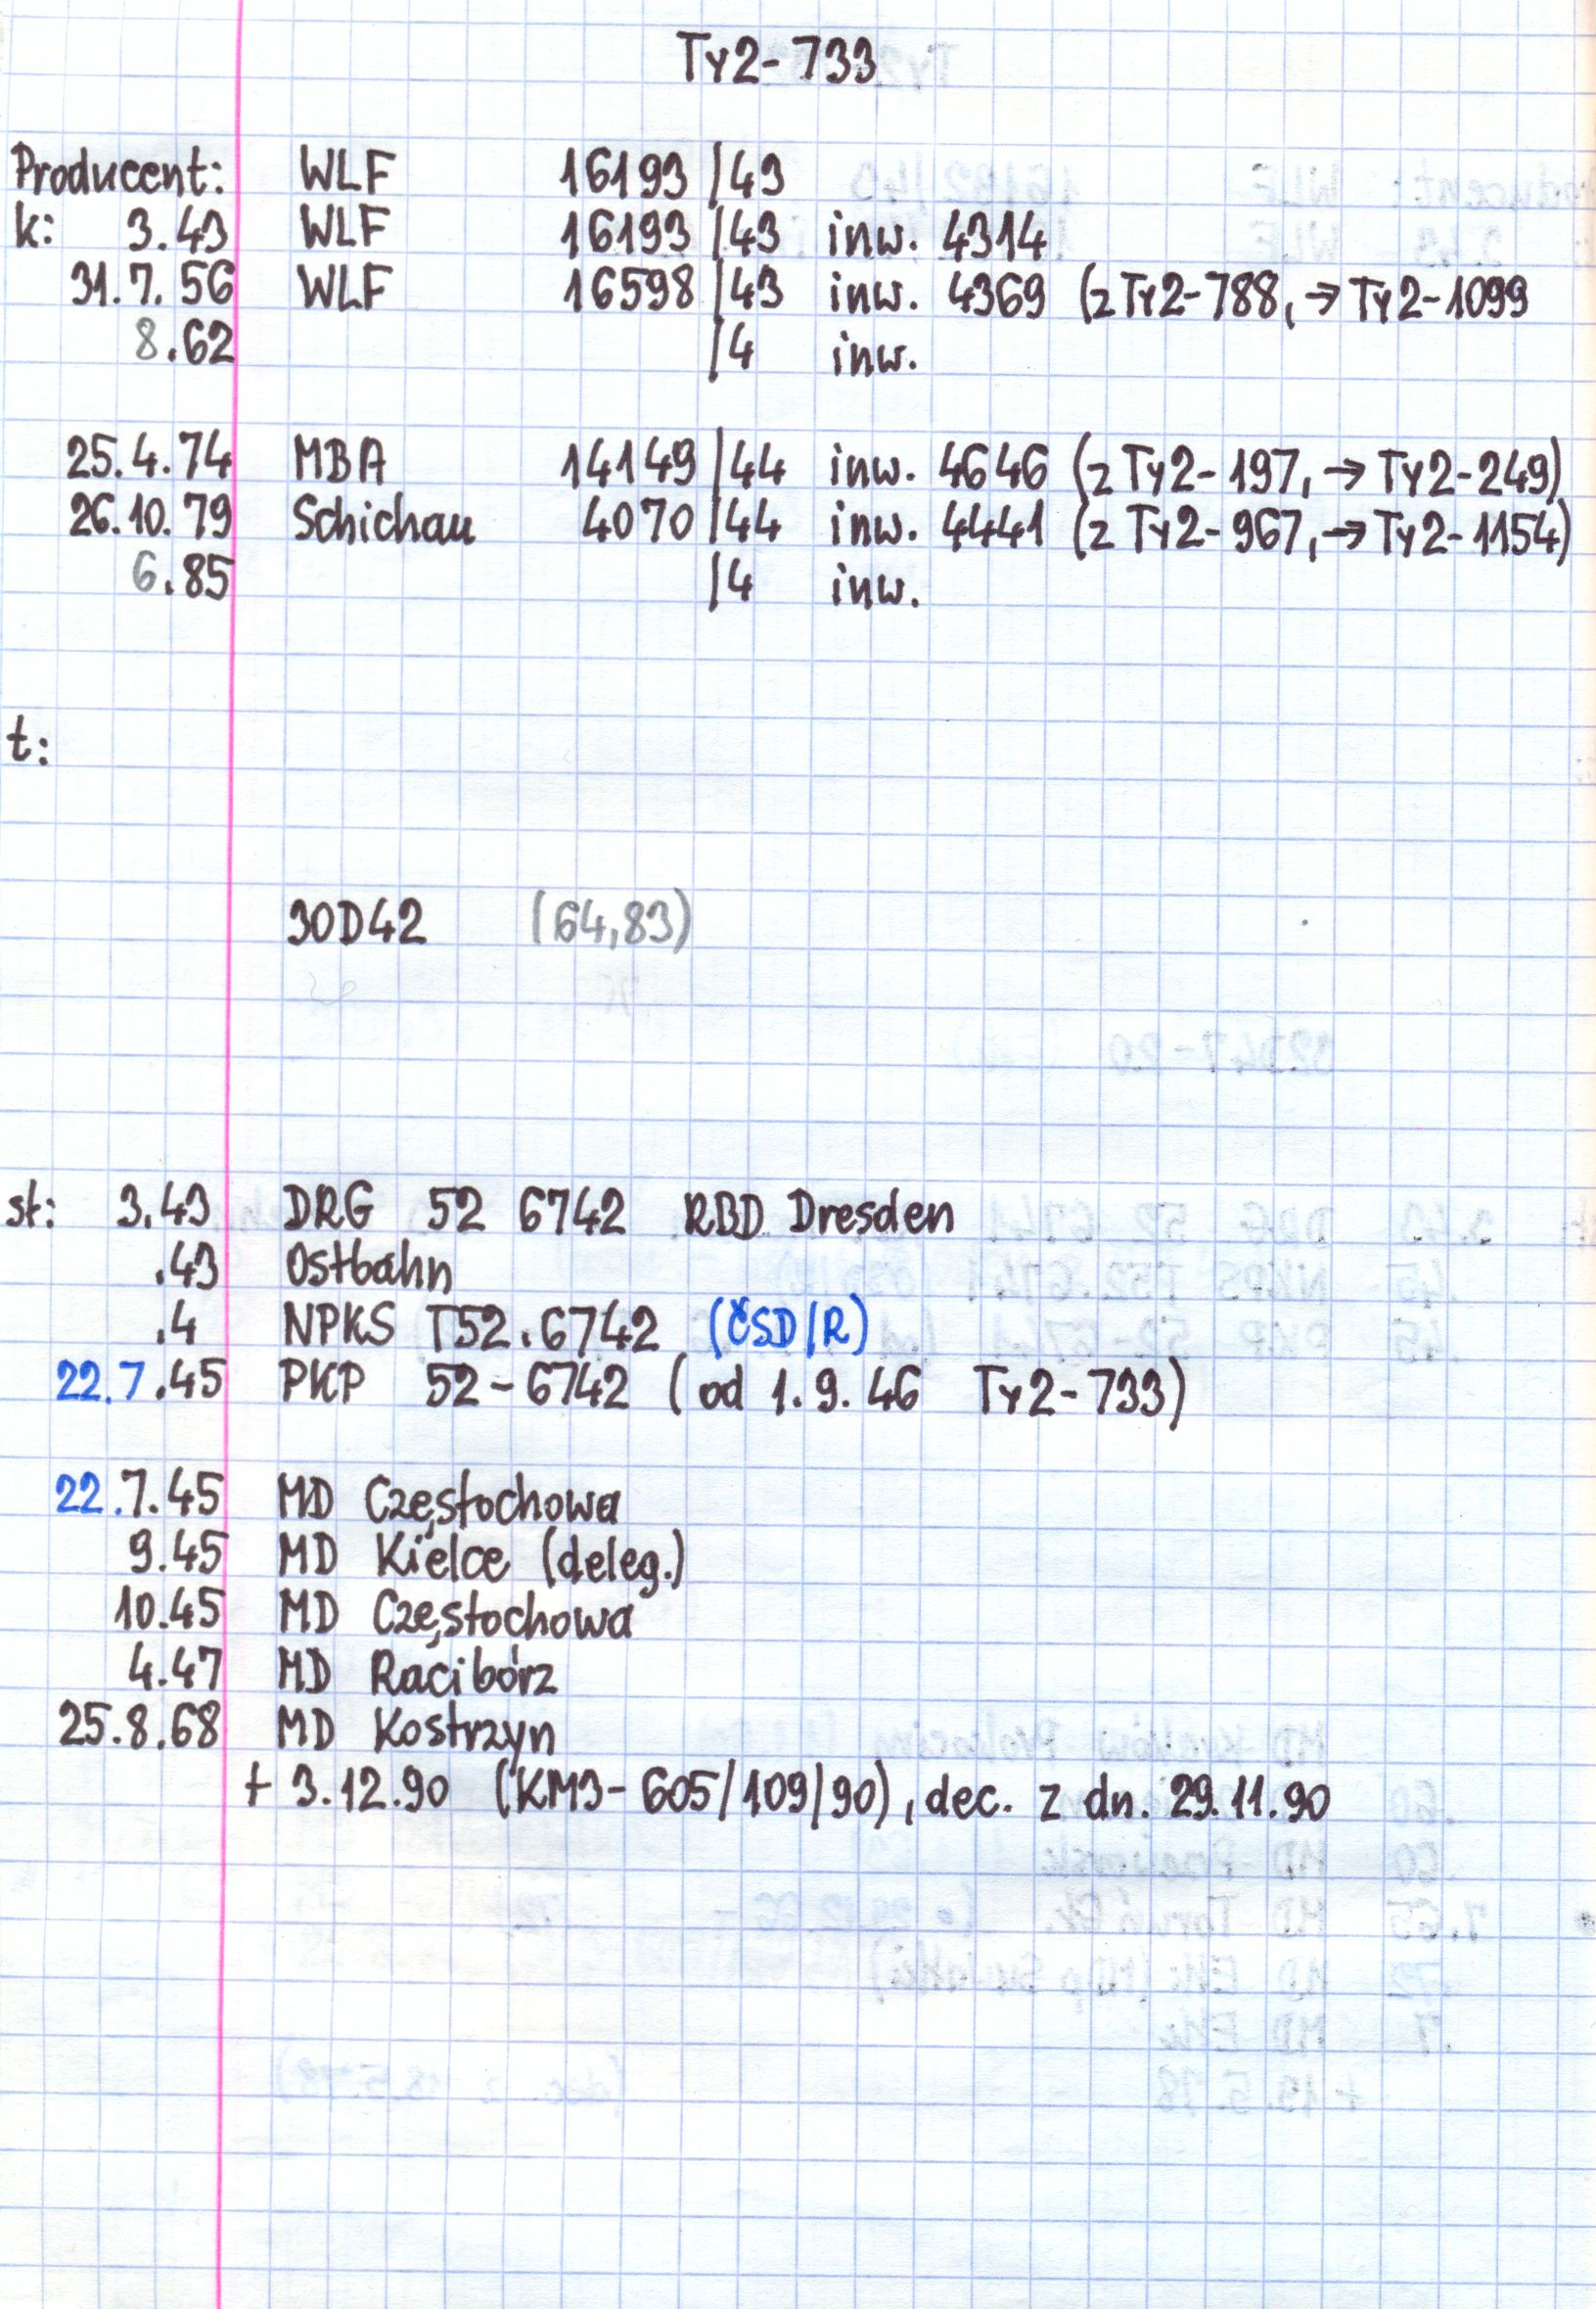 Ty2-733
Producent: WLF 16193/43
k: 3.43 WLF 16193/43 inw. 4314
31.7.56 WLF 16598/43 inw. 4369 (z Ty2-788, → Ty2-1099
8.62 /4 inw.
25.4.74 MBA 14149/44 inw. 4646 (z Ty2-197, → Ty2-249)
26.10.79 Schichau 4070/44 inw. 4441 (z Ty2-967, → Ty2-1154)
6.85 /4 inw.
t:
30D42 (64,83)
st: 3.43 DRG 52 6742 RBD Dresden
.43 Ostbahn
.4 NPKS T52.6742 (ČSD/R)
22.7.45 PKP 52-6742 (od 1.9.46 Ty2-733)
22.7.45 MD Częstochowa
9.45 MD Kielce (deleg.)
10.45 MD Częstochowa
4.47 MD Racibórz
25.8.68 MD Kostrzyn
+ 3.12.90 (KM3-605/109/90), dec. z dn. 29.11.90